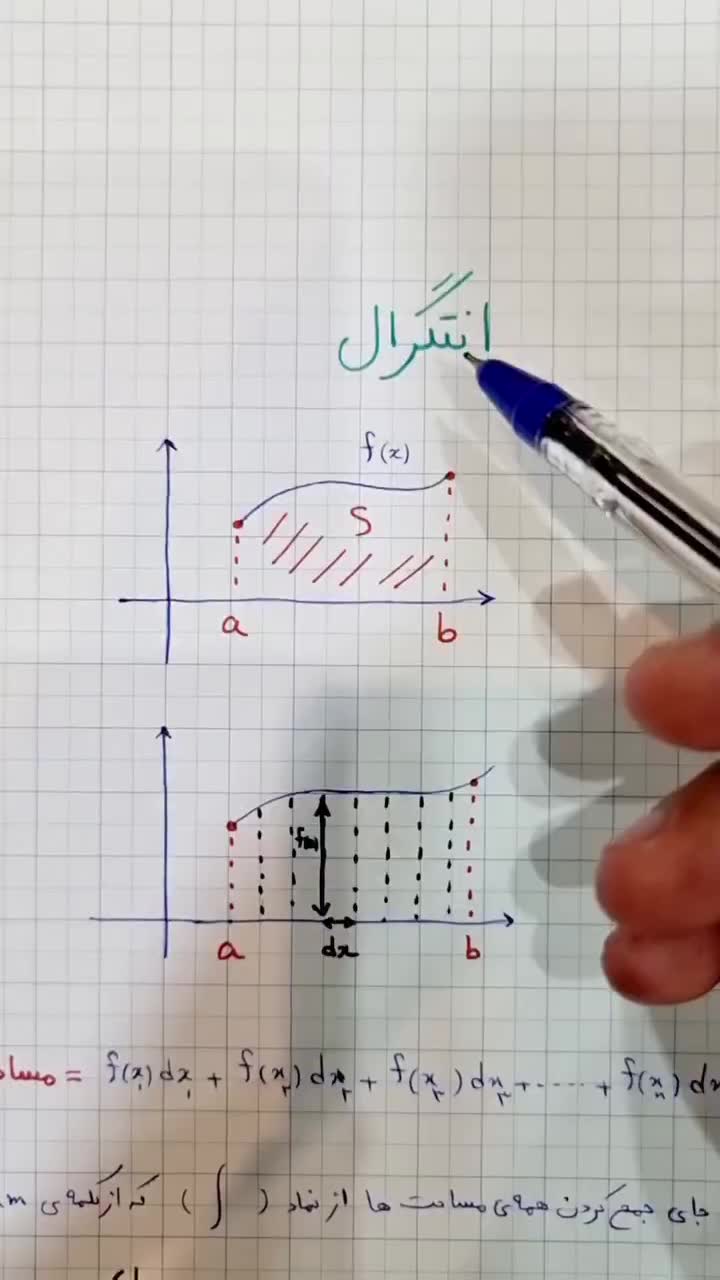 انتگرال
f(x)
S
a b
f(x)
dx
a b
= f(x₁)dx₁ + f(x₂)dx₂ + f(x₃)dx₃ + ..... + f(xₙ)dx
جای جمع کردن همه‌ی مساحت ها از نماد ( ∫ ) که از کلمه‌ی